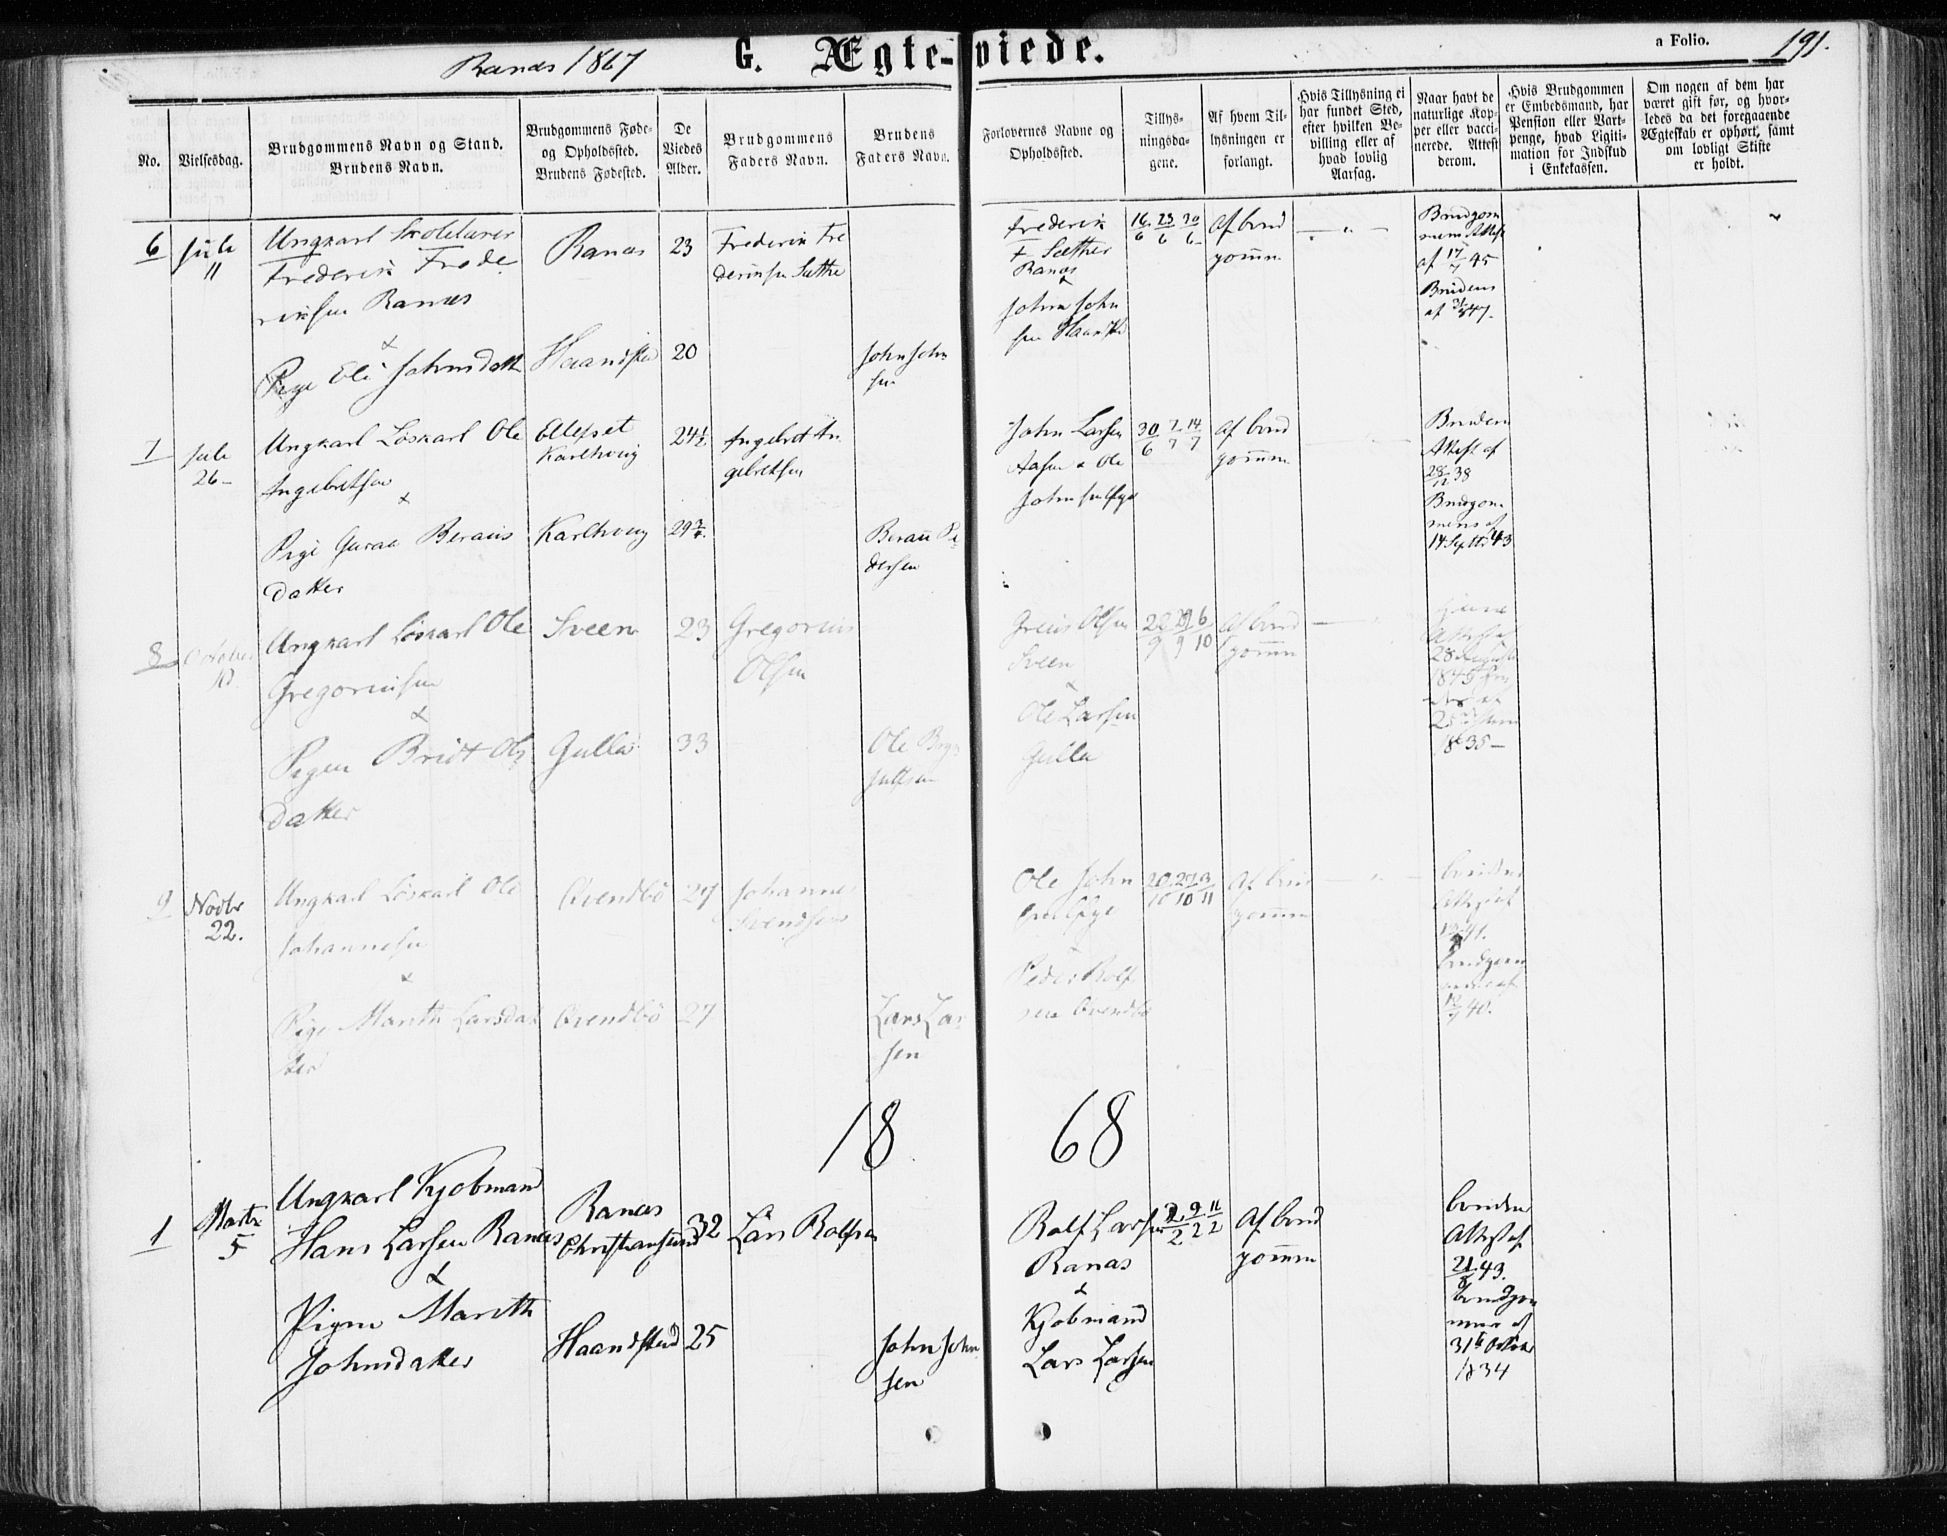 Ranæs 1867
G. Ægte-viede.
a Folio.
191.
No.
Vielsesdag.
Brudgommens Navn og Stand.
Brudens Navn.
Brudgommens Føde-
og Opholdssted.
Brudens Fødested.
De
Viedes
Alder.
Brudgommens
Faders Navn.
Brudens
Faders Navn.
Forlovernes Navne og
Opholdssted.
Tillys-
ningsda-
gene.
Af hvem Til-
lysningen er
forlangt.
Hvis Tillysning ei
har fundet Sted,
efter hvilken Be-
villing eller af
hvad lovlig
Aarsag.
Naar havt de
naturlige Kop-
per eller vacci-
nerede. Attest
derom.
Hvis Brudgommen
er Embedsmand, har
Pension eller Vart-
penge, hvad Ligiti-
mation for Indskud
i Enkekassen.
Om nogen af dem har
været gift før, og hvor-
ledes da det foregaaende
Ægteskab er ophørt, samt
om lovligt Skifte
er holdt.
6
Juli
11
Ungkarl Skolelærer
Frederik Frede
riksen Ranæs
&
Pige Eli Johnsdatt
Ranæs
Haandstad
23
20
Frederik Fre
deriksen Sæthre
John John
sen
Frederik
F Sæther
Ranæs
&
John John
sen Haandstad
16 23 30
6 6 6
af brud
gomm
Brudgom
mens Attest
af 17/7 45
Brudens
af 47.
7
Juli
26
Ungkarl Löskarl Ole
Angebretsen
&
Pige Guraa Beraus
datter
Ellefset
Karlhoug
Karlhoug
24½
29¾
Angebret An
gebretsen
Berau Pe
dersen
John Larsen
Aasen & Ole
Johnsen
30 7 14
6 7 7
af brud
gomm
Brudens
Attest af
28/12 38
Brudgom
mens af
14 Septbr 43
8
October
10
Ungkarl Löskarl Ole
Gregoriusen
&
Pigen Bridt Ols
datter
Sveen
Gulla
23
33
Gregorius
Olsen
Ole
Greius Olsen
Sveen
&
Ole Larsen
Gulla
22 29 6
9 9 10
af brud
gomm
Attest af
28 August
1845
1835
9
Novbr
22.
Ungkarl Löskarl Ole
Johannesen
&
Pige Marith Larsdat
ter
Qvendbö
Qvendbö
27
27
Johannes
Svendsen
Lars Lar
sen
Ole John
&
Peder Rolf
sen Qvendbö
20 27 3
10 10 11
af brud
gomm
brudens
Attest af
41.
brudgom
40.
18 68
1
Marts
5
Ungkarl Kjøbmand
Hans Larsen Ranæs
&
Pigen Marith
Johnsdatter
Ranæs
Christiansund
Haandstad
32
25
Lars Rolfsen
John John
sen
Rolf Larsen
Ranæs
&
Kjøbmand
Lars Larsen
2 9 11
2 2 2
af brud
gomm
bruden
Attest af
21/8 43.
brudgom
mens af
31te October
1834